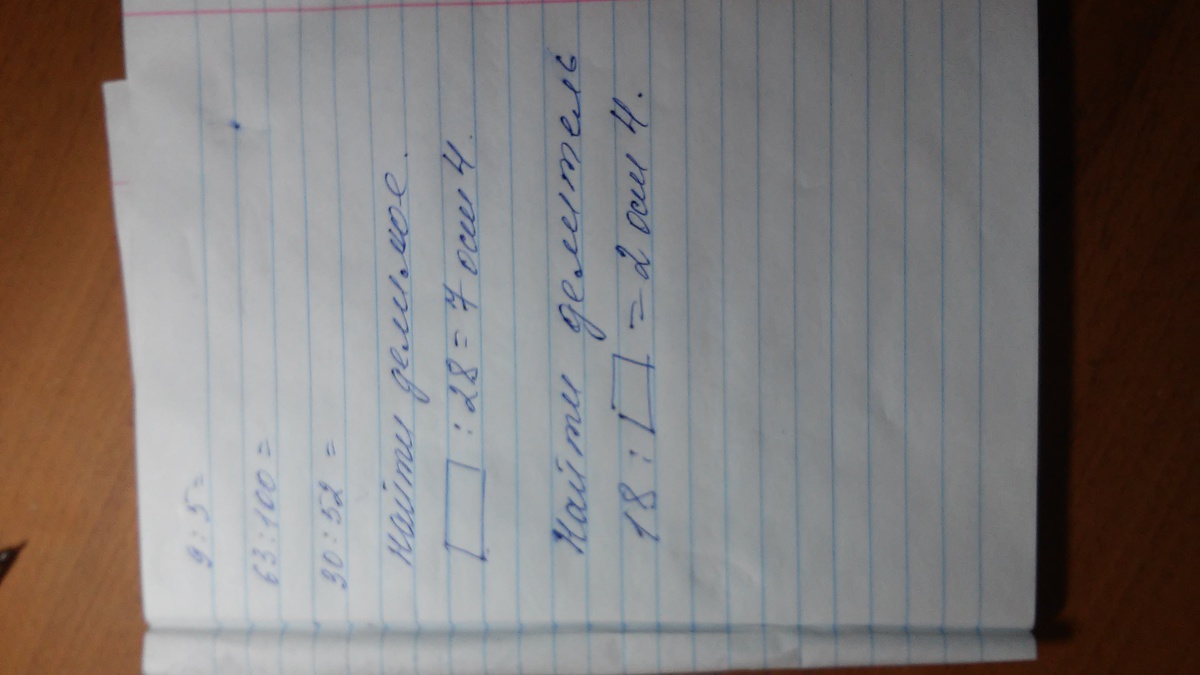 9:5=
63:100=
30:52=
Найти делимое.
[ ]:28=7 ост 4.
Найти делитель
18:[ ]=2 ост 4.